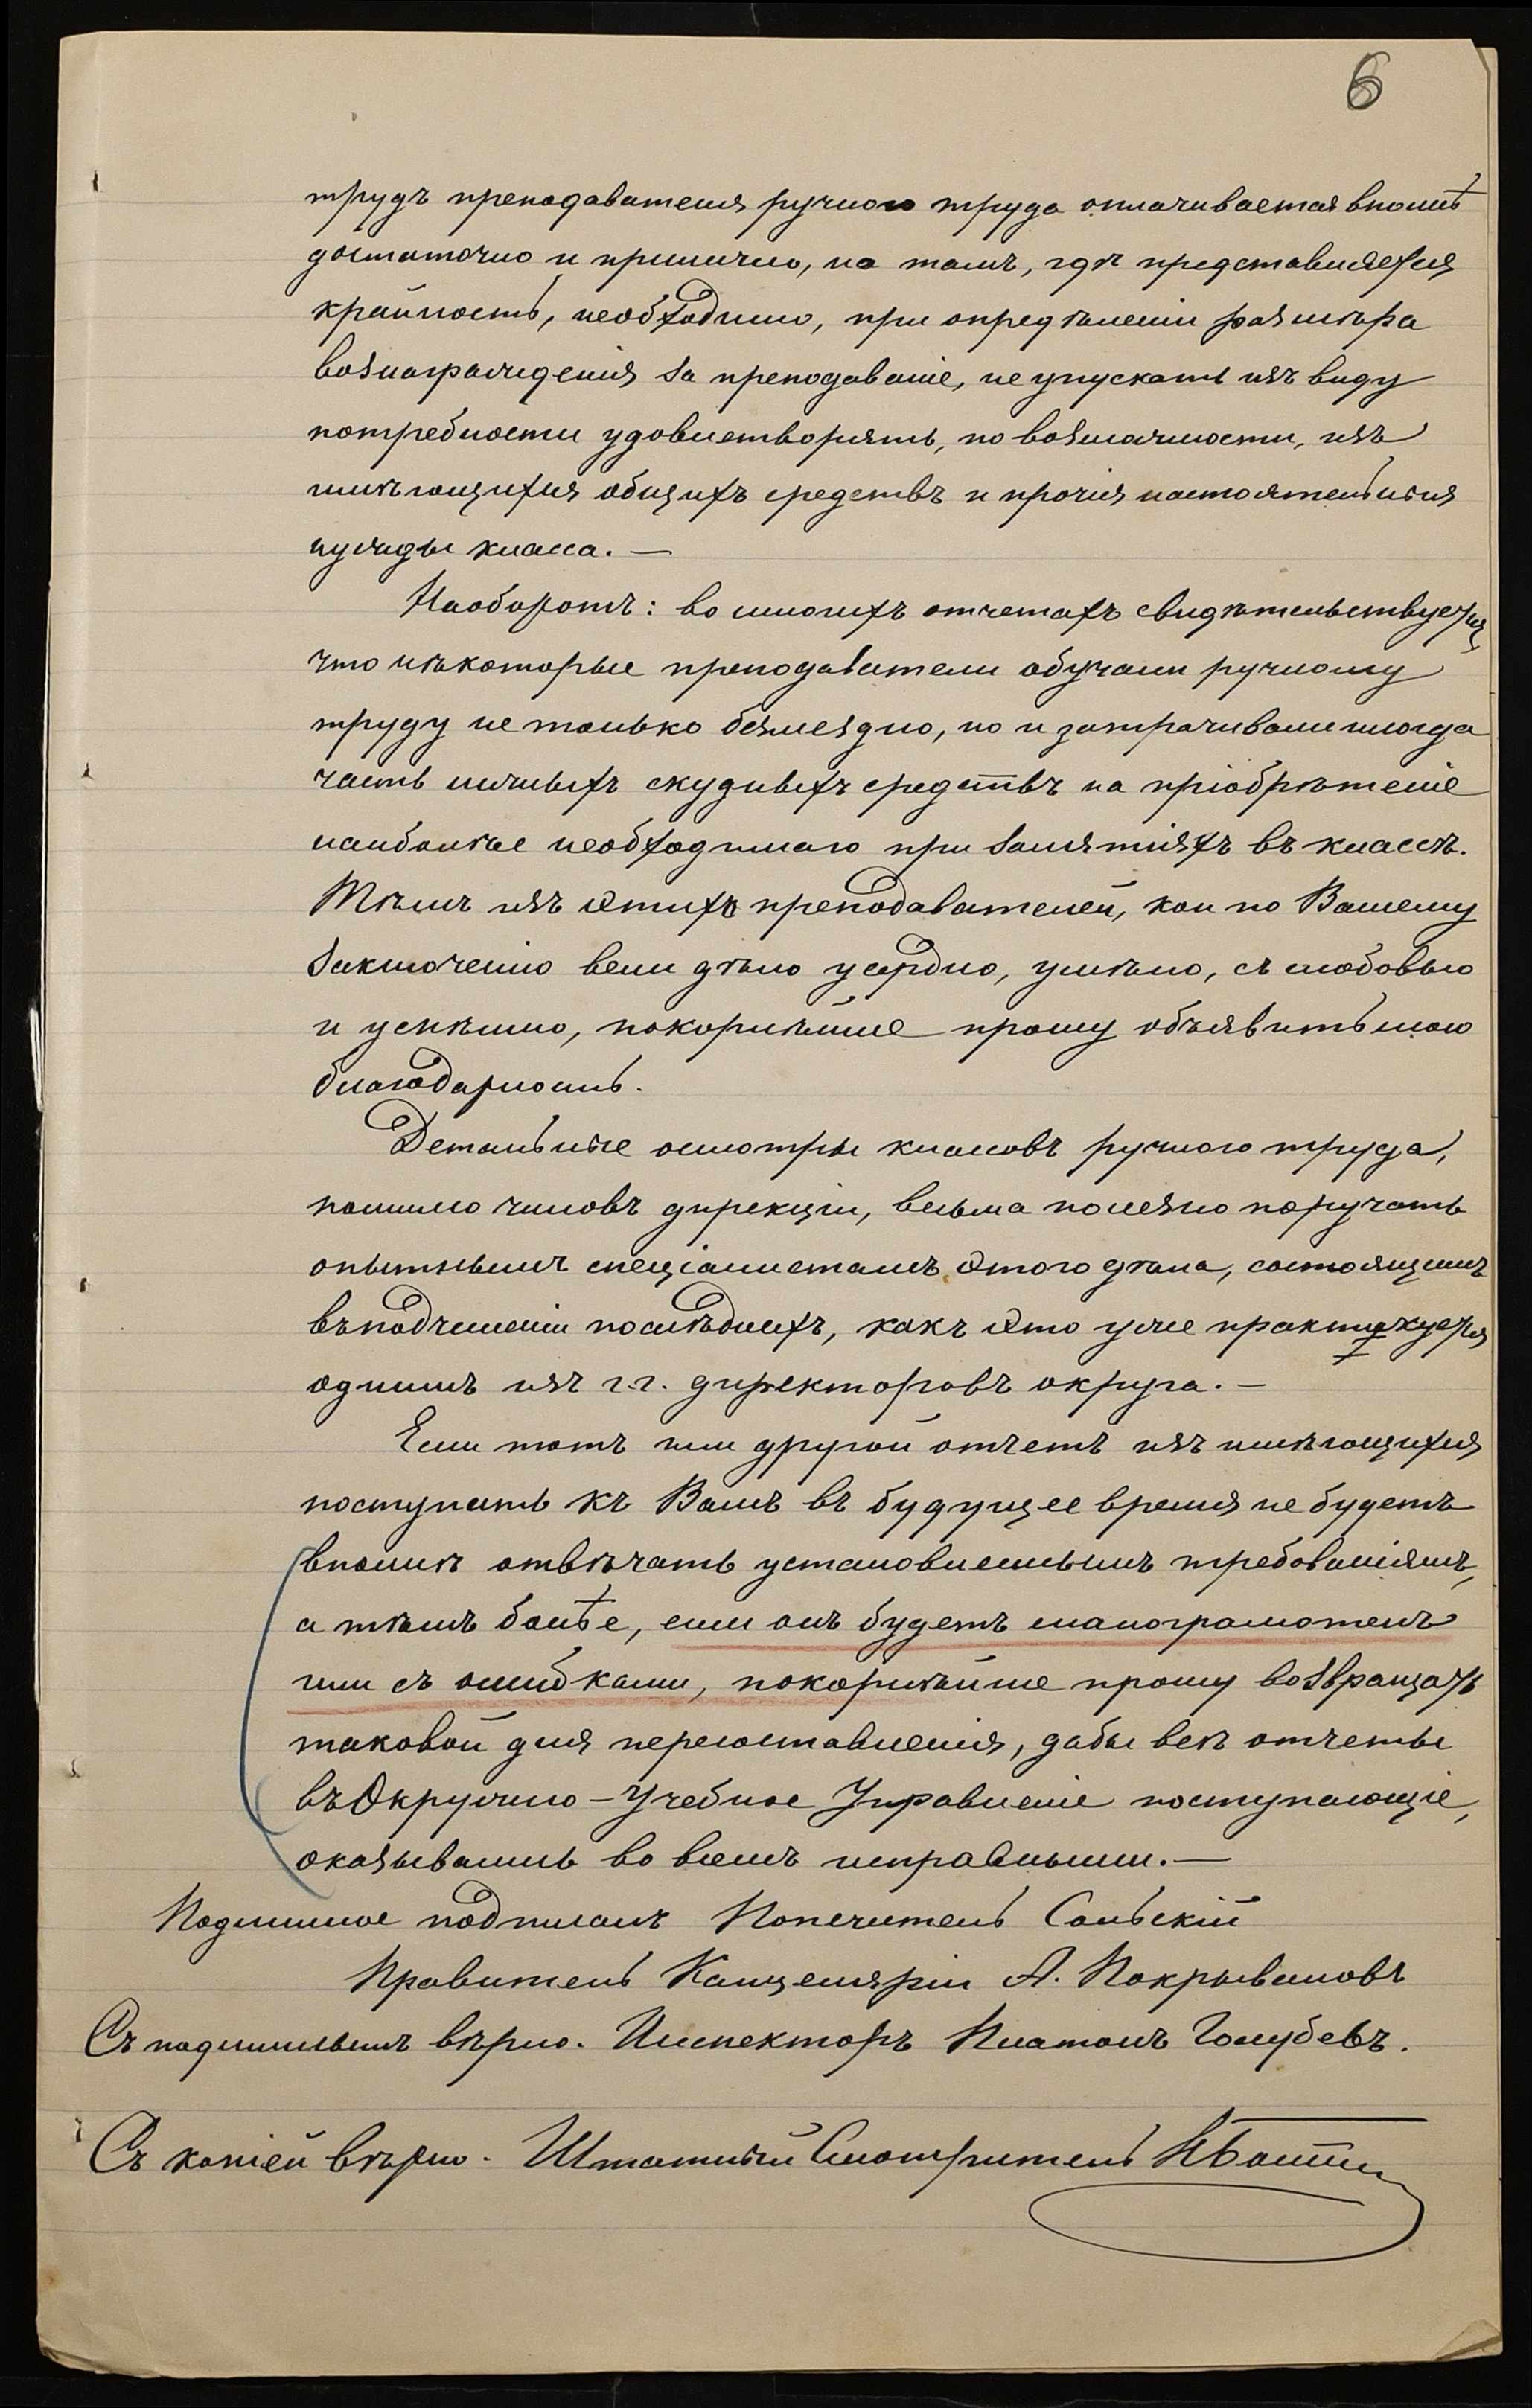 6
трудъ преподавателя ручного труда оплачивается вполнѣ
достаточно и прилично, но тамъ, гдѣ представляется
крайность, необходимо, при опредѣленіи размѣра
вознагражденія за преподаваніе, не упускать изъ виду
потребности удовлетворять, по возможности, изъ
имѣющихся общихъ средствъ и прочія настоятельныя
нужды класса. —
Наоборотъ: во многихъ отчетахъ свидѣтельствуется,
что нѣкоторые преподаватели обучали ручному
труду не только безмездно, но и затрачивали иногда
часть личныхъ скудныхъ средствъ на пріобрѣтеніе
наиболѣе необходимаго при занятіяхъ въ классѣ.
Тѣмъ изъ этихъ преподавателей, кои по Вашему
заключенію вели дѣло усердно, умѣло, съ любовью
и успѣшно, покорнѣйше прошу объявить мою
благодарность.
Детальные осмотры классовъ ручного труда,
помимо чиновъ дирекціи, весьма полезно поручать
опытнымъ спеціалистамъ этого дѣла, состоящимъ
въ подчиненіи послѣднихъ, какъ это уже практикуется
однимъ изъ г.г. директоровъ округа. —
Если тотъ или другой отчетъ изъ имѣющихся
поступать къ Вамъ въ будущее время не будетъ
вполнѣ отвѣчать установленнымъ требованіямъ,
а тѣмъ болѣе, если онъ будетъ малограмотенъ
или съ ошибками, покорнѣйше прошу возвращать
таковой для пересоставленія, дабы всѣ отчеты
въ Окружно-Учебное Управленіе поступающіе,
оказывались во всемъ исправными. —
Подлинное подписалъ Попечитель Сольскій
Правитель Канцеляріи А. Покрывановъ
Съ подлиннымъ вѣрно. Инспекторъ Платонъ Голубевъ.
Съ копіей вѣрно. Штатный Смотритель